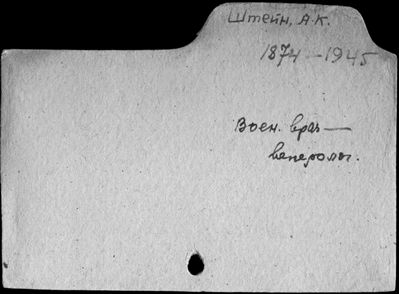 Штейн, А.К.
1874—1945
Воен. врач—
венеролог.